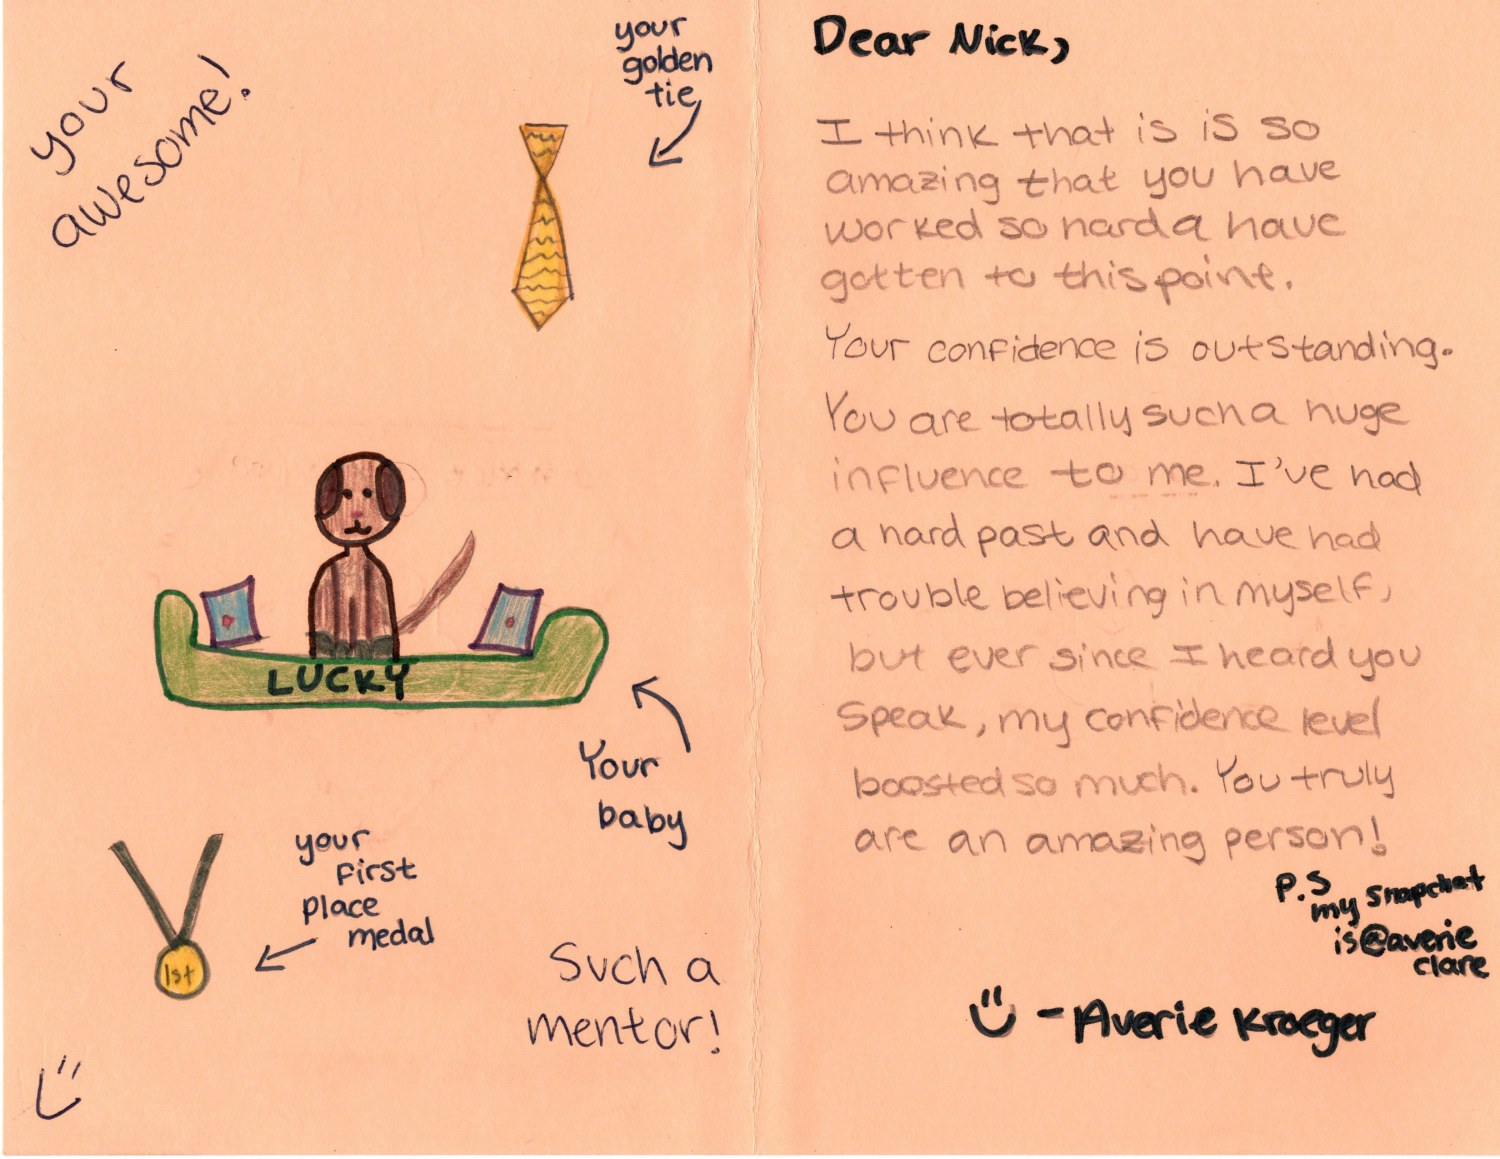 your
awesome!
your
golden
tie
LUCKY
Your
baby
your
first
place
medal
1st
Such a
mentor!
Dear Nick,
I think that is is so
amazing that you have
worked so hard a have
gotten to this point.
Your confidence is outstanding.
You are totally such a huge
influence to me. I've had
a hard past and have had
trouble believing in myself,
but ever since I heard you
speak, my confidence level
boosted so much. You truly
are an amazing person!
P.S
my snapchat
is @averie
clare
- Averie Kroeger